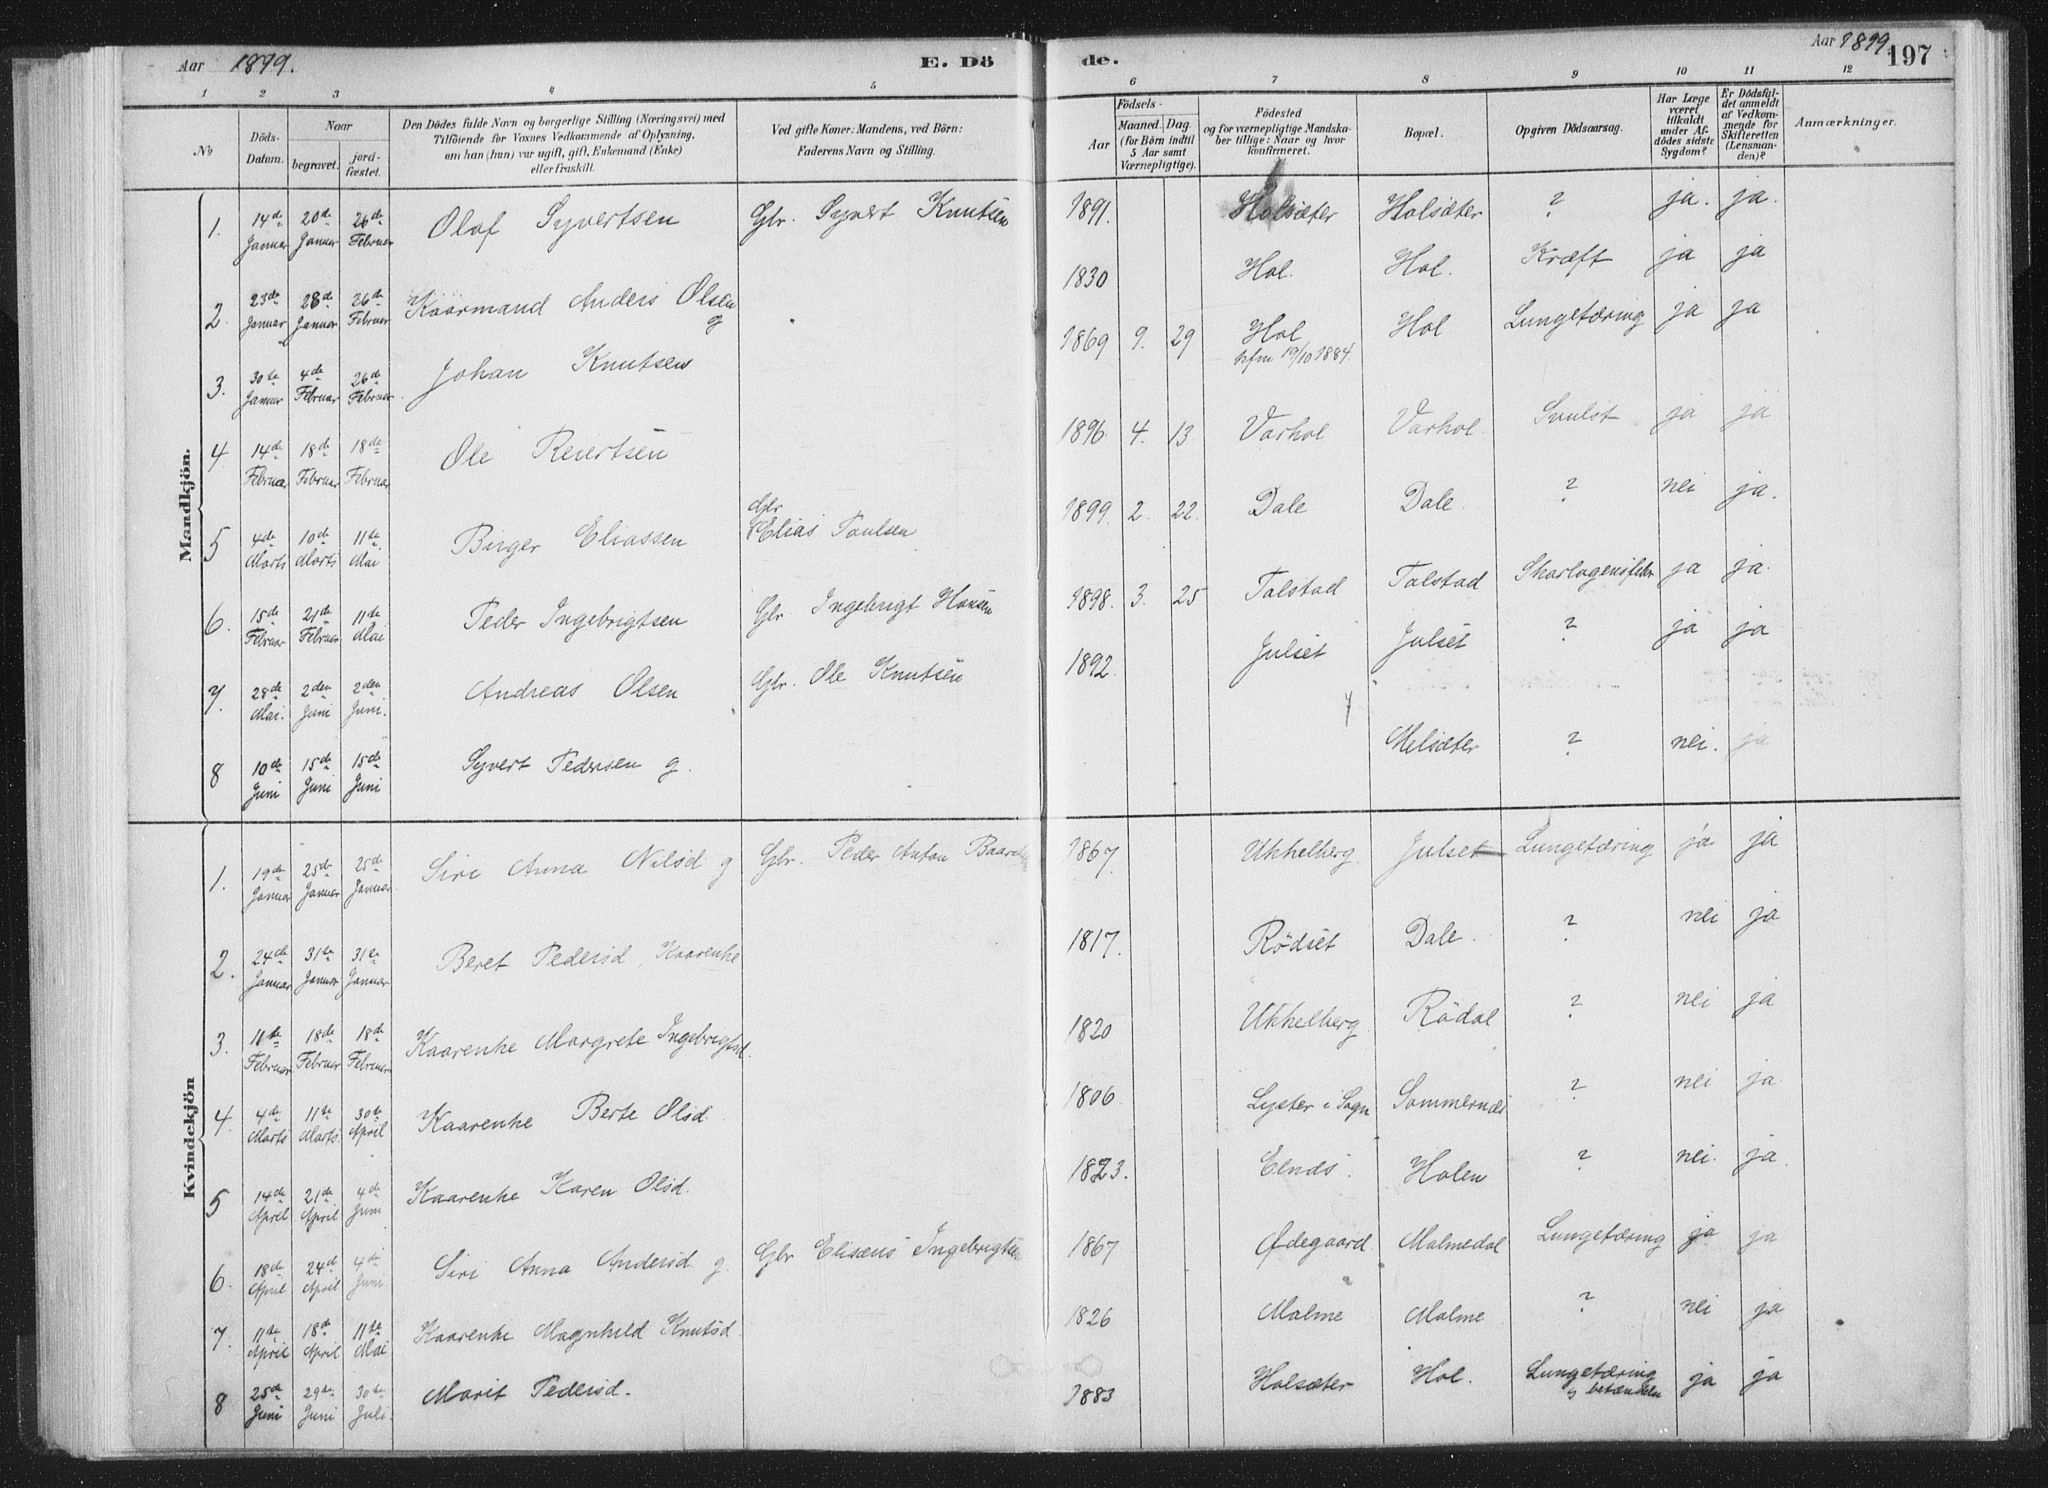 Aar 1899. E. Dö de. Aar 1899. 197
1 2 3 4 5 6 7 8 9 10 11 12
No
Döds-Datum.
Naar
begravet.
jordfæstet.
Den Dödes fulde Navn og borgerlige Stilling (Næringsvei) med
Tilföiende for Voxnes Vedkommende af Oplysning,
om han (hun) var ugift, gift, Enkemand (Enke)
eller fraskilt.
Ved gifte Koner: Mandens, ved Börn:
Faderens Navn og Stilling.
Födsels-
Aar
Maaned. Dag.
(for Börn indtil
5 Aar samt
Værnepligtige).
Födested
og for værnepligtige Mandska-
ber tillige: Naar og hvor
konfirmeret.
Bopæl.
Opgiven Dödsaarsag.
Har Læge
været
tilkaldt
under Af-
dödes sidste
Sygdom?
Er Dödsfal-
det anmeldt
af Vedkom-
mende for
Skifteretten
(Lensman-
den)?
Anmærkninger.
Mandkjön.
1. 14de Januar 20de Januar 26de Februar Olaf Syvertsen Gbr. Syvert Knutsen 1891. Holsæter Holsæter ? ja. ja.
2. 23de Januar 28de Januar 26de Februar Kaarmand Anders Olsen g 1830 Hol. Hol. Kræft ja ja
3. 30te Januar 4de Februar 26de Februar Johan Knutsen 1869 9. 29 Hol kfm 19/10 1884. Hol Lungetæring ja ja
4 14de Februar 18de Februar 18de Februar Ole Reiertsen 1896. 4. 13. Varhol Varhol Svulst ja ja
5 4de Marts 10de Marts 11te Mai Birger Eliassen Gbr Elias Paulsen 1899. 2. 22. Dale Dale. ? nei ja.
6. 15de Februar 21de Februar 11te Mai Peder Ingebrigtsen Gbr. Ingebrigt Hansen 1898. 3. 25 Talstad Talstad Skarlagensfeber ja ja.
7. 28de Mai. 2den Juni 2den Juni. Andreas Olsen Gbr. Ole Knutsen 1892. Julset Julset ? ja ja
8 10de Juni 15de Juni 15de Juni Syvert Pedersen g. Melsæter ? nei. ja
Kvindekjön
1. 19de Januar 25de Januar 25de Januar Siri Anna Nilsd g Gbr. Peder Anton 1867. Ukkelberg. Julset Lungetæring ja ja
2. 24de Januar 31te Januar 31te Januar Beret Pedersd, Kaarenke 1817. Rödset Dale. ? nei ja
3. 11te Februar 18de Februar 18de Februar Kaarenke Margrete Ingebrigtsd. 1820 Ukkelberg Rödal ? nei ja
4. 4de Marts 11te Marts. 30te April Kaarenke Berte Olsd. 1806. Lyster i Sogn Sommernæs ? nei ja
5 14de April 21de April 4de Juni Kaarenke Karen Olsd. 1823. Elnæs. Holen ? nei. ja.
6. 18de April 24de April 4de Juni Siri Anna Andersd. g. Gbr Elisæus Ingebrigtsen 1867 Ødegaard. Malmedal Lungetæring ja ja
7. 11te April 18de April 11te Mai Kaarenke Magnhild Knutsd. 1826 Malme Malme ? nei ja
8 25de Juni 29de Juni 30te Juli. Marit Pedersd. 1883 Holsæter Hol. Lungetæring ja ja